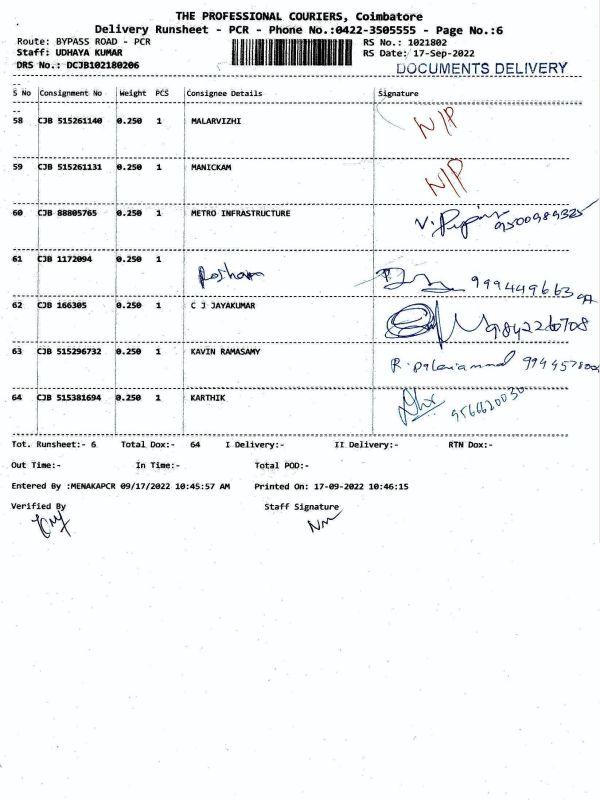 THE PROFESSIONAL COURIERS, Coimbatore
Delivery Runsheet - PCR - Phone No.:0422-3505555 - Page No.:6
Route: BYPASS ROAD - PCR RS No.: 1021802
Staff: UDHAYA KUMAR RS Date: 17-Sep-2022
DRS No.: DCJB102180206 DOCUMENTS DELIVERY
S No Consignment No Weight PCS Consignee Details Signature
58 CJB 515261140 0.250 1 MALARVIZHI N/P
59 CJB 515261131 0.250 1 MANICKAM N/P
60 CJB 88805765 0.250 1 METRO INFRASTRUCTURE
61 CJB 1172094 0.250 1
62 CJB 166305 0.250 1 C J JAYAKUMAR 9842260708
63 CJB 515296732 0.250 1 KAVIN RAMASAMY
64 CJB 515381694 0.250 1 KARTHIK
Tot. Runsheet:- 6 Total Dox:- 64 I Delivery:- II Delivery:- RTN Dox:-
Out Time:- In Time:- Total POD:-
Entered By :MENAKAPCR 09/17/2022 10:45:57 AM Printed On: 17-09-2022 10:46:15
Verified By Staff Signature